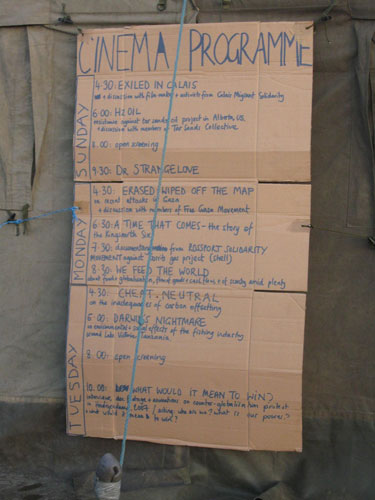 CINEMA PROGRAMME
SUNDAY
4.30: EXILED IN CALAIS
+ discussion with film maker + activists from Calais Migrant Solidarity
6.00: H2OIL
resistance against tar sands oil project in Alberta,
+ discussion with members of Tar Sands Collective
8.00: open screening
9.30: DR STRANGELOVE
MONDAY
4.30: ERASED WIPED OFF THE MAP
on recent attacks of Gaza
+ discussion with members of Free Gaza Movement
6.30: A TIME THAT COMES - the story of
the Kingsnorth Six
7.30: from ROSSPORT SOLIDARITY
MOVEMENT against gas project (shell)
8.30: WE FEED THE WORLD
about food + globalisation, scarcity amid plenty
TUESDAY
4.30: CHEAT NEUTRAL
on the inadequacies of carbon offsetting
6.00: DARWIN'S NIGHTMARE
on environmental + social effects of the fishing industry
around Lake Victoria, Tanzania
8.00: open screening
10.00: WHAT WOULD IT MEAN TO WIN?
on counter-globalisation protest
2007 (asking who are we? what is our power?
+ what would it mean to win?